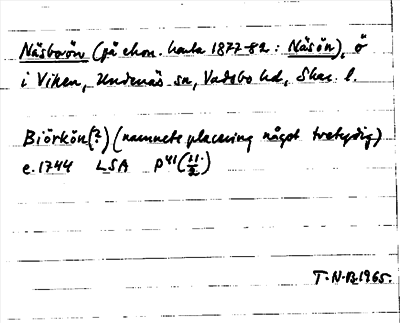 Näsborön (på ekon. karta 1877-82: Näsön), ö
i Viken, Undenäs sn, Vadsbo hd, Skar. l.
Biörkön(?) (namnets placering något tvetydig)
c. 1744 LSA P41(11/2)
T.N.B. 1965.